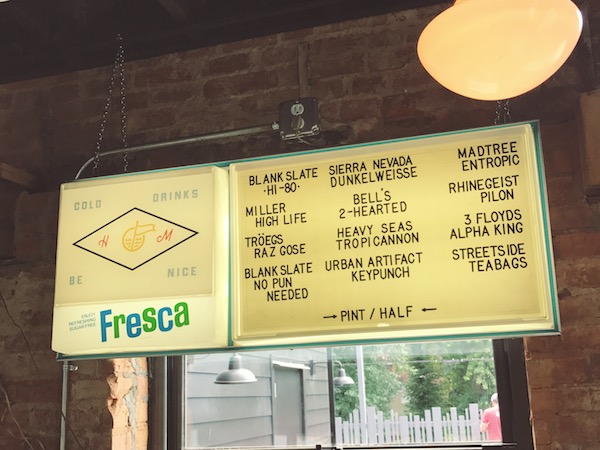 COLD DRINKS
H M
BE NICE
ENJOY
REFRESHING
SUGAR FREE
Fresca
BLANK SLATE
·HI-80·
MILLER
HIGH LIFE
TRÖEGS
RAZ GOSE
BLANK SLATE
NO PUN
NEEDED
SIERRA NEVADA
DUNKELWEISSE
BELL'S
2-HEARTED
HEAVY SEAS
TROPICANNON
URBAN ARTIFACT
KEYPUNCH
MADTREE
ENTROPIC
RHINEGEIST
PILON
3 FLOYDS
ALPHA KING
STREETSIDE
TEABAGS
→ PINT / HALF ←